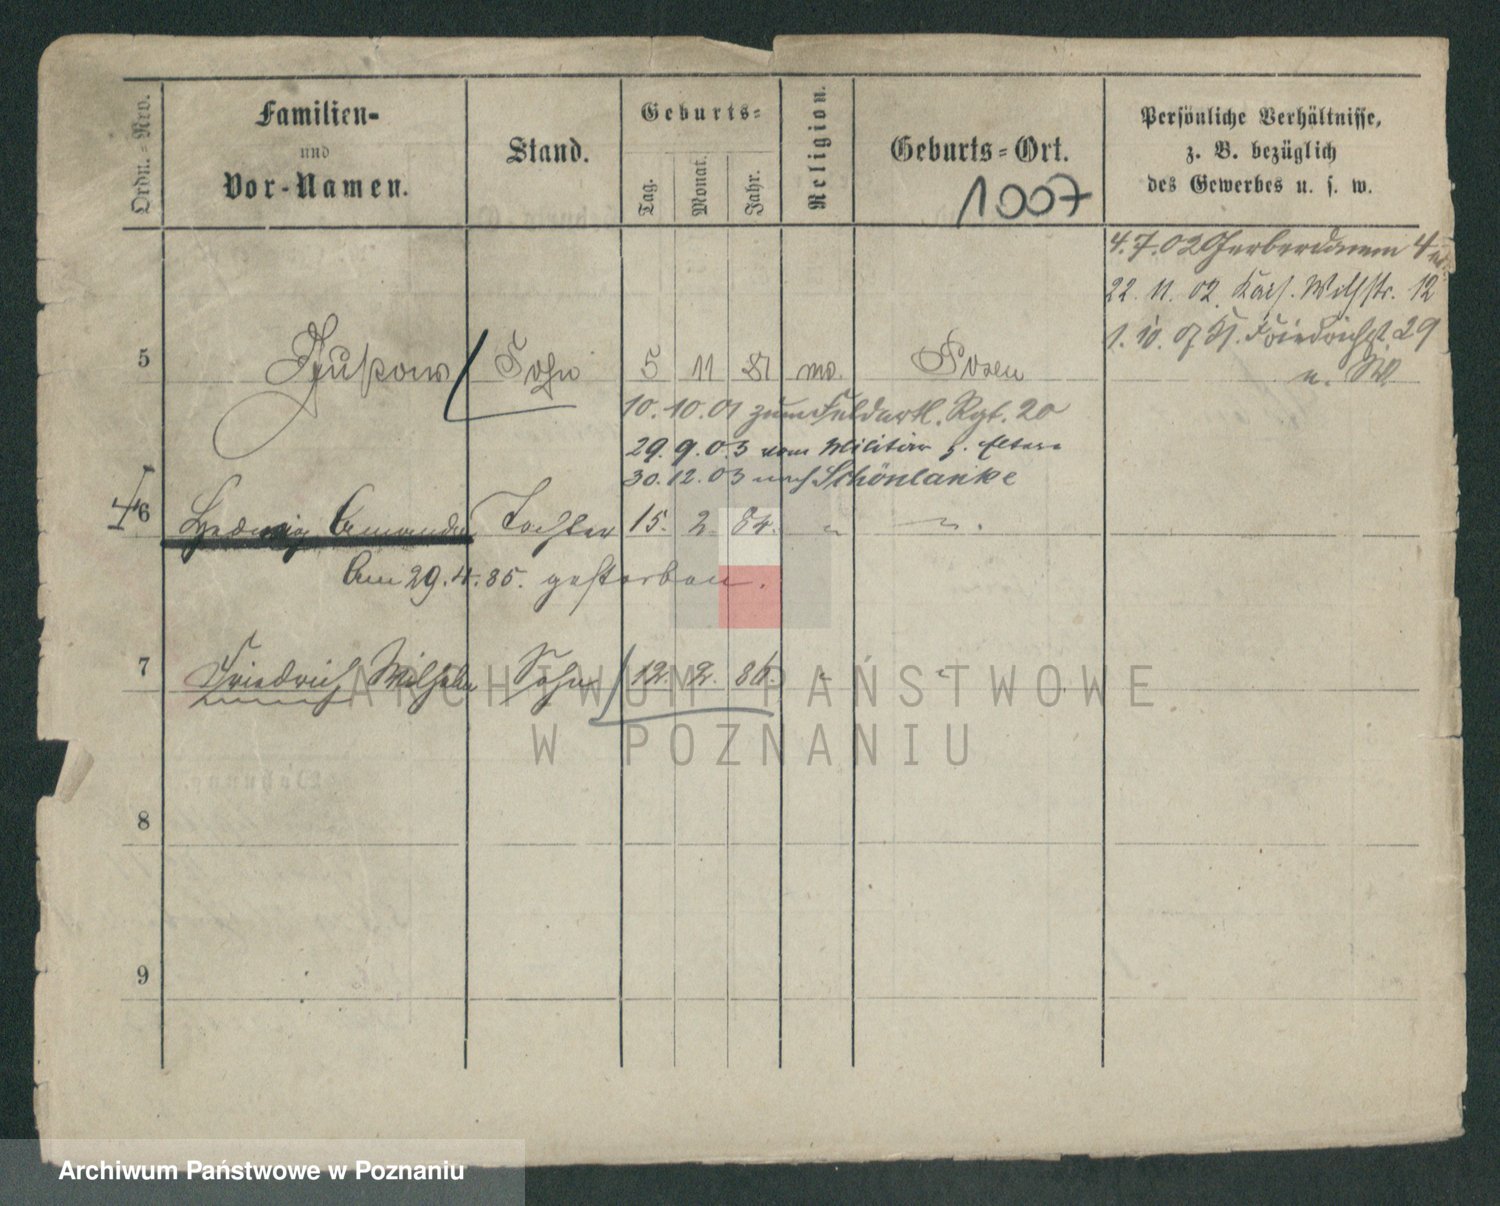 Ordn.-Nro.
Familien-
und
Vor-Namen.
Stand.
Geburts-
Tag.
Monat.
Jahr.
Religion.
Geburts-Ort.
1007
Persönliche Verhältnisse,
z. B. bezüglich
des Gewerbes u. s. w.
4. 7. 02 Gerberdamm 4
22. 11. 02. Kais. Wilhstr. 12
1. 10. 07 Friedrichst. 29
5 Sohn 5 11 81 mo. Posen
10. 10. 01 zum Feldartl. Rgt. 20
29. 9. 03 vom Militär z. Eltern
30. 12. 03 nach Schönlanke
6 Hedwig Amanda Tochter 15. 2. 84. " "
Am 29. 4. 85. gestorben.
7 Friedrich Wilhelm Sohn 12. 2. 86. " "
8
9
ARCHIWUM PAŃSTWOWE
W POZNANIU
Archiwum Państwowe w Poznaniu